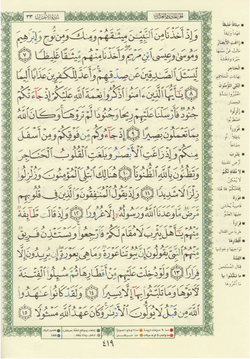 سُورَةُ الأَحْزَابِ ٣٣
وَإِذْ أَخَذْنَا مِنَ ٱلنَّبِيِّـۧنَ مِيثَـٰقَهُمْ وَمِنكَ وَمِن نُّوحٍ وَإِبْرَٰهِيمَ
وَمُوسَىٰ وَعِيسَى ٱبْنِ مَرْيَمَ وَأَخَذْنَا مِنْهُم مِّيثَـٰقًا غَلِيظًا
٧ لِّيَسْـَٔلَ ٱلصَّـٰدِقِينَ عَن صِدْقِهِمْ وَأَعَدَّ لِلْكَـٰفِرِينَ عَذَابًا أَلِيمًا
٨ يَـٰٓأَيُّهَا ٱلَّذِينَ ءَامَنُوا۟ ٱذْكُرُوا۟ نِعْمَةَ ٱللَّهِ عَلَيْكُمْ إِذْ جَآءَتْكُمْ
جُنُودٌ فَأَرْسَلْنَا عَلَيْهِمْ رِيحًا وَجُنُودًا لَّمْ تَرَوْهَا وَكَانَ ٱللَّهُ
بِمَا تَعْمَلُونَ بَصِيرًا ٩ إِذْ جَآءُوكُم مِّن فَوْقِكُمْ وَمِنْ أَسْفَلَ
مِنكُمْ وَإِذْ زَاغَتِ ٱلْأَبْصَـٰرُ وَبَلَغَتِ ٱلْقُلُوبُ ٱلْحَنَاجِرَ
وَتَظُنُّونَ بِٱللَّهِ ٱلظُّنُونَا۠ ١٠ هُنَالِكَ ٱبْتُلِىَ ٱلْمُؤْمِنُونَ وَزُلْزِلُوا۟
زِلْزَالًا شَدِيدًا ١١ وَإِذْ يَقُولُ ٱلْمُنَـٰفِقُونَ وَٱلَّذِينَ فِى قُلُوبِهِم
مَّرَضٌ مَّا وَعَدَنَا ٱللَّهُ وَرَسُولُهُۥٓ إِلَّا غُرُورًا ١٢ وَإِذْ قَالَت طَّآئِفَةٌ
مِّنْهُمْ يَـٰٓأَهْلَ يَثْرِبَ لَا مُقَامَ لَكُمْ فَٱرْجِعُوا۟ وَيَسْتَـْٔذِنُ فَرِيقٌ
مِّنْهُمُ ٱلنَّبِىَّ يَقُولُونَ إِنَّ بُيُوتَنَا عَوْرَةٌ وَمَا هِىَ بِعَوْرَةٍ إِن يُرِيدُونَ إِلَّا
فِرَارًا ١٣ وَلَوْ دُخِلَتْ عَلَيْهِم مِّنْ أَقْطَارِهَا ثُمَّ سُئِلُوا۟ ٱلْفِتْنَةَ
لَـَٔاتَوْهَا وَمَا تَلَبَّثُوا۟ بِهَآ إِلَّا يَسِيرًا ١٤ وَلَقَدْ كَانُوا۟ عَـٰهَدُوا۟
ٱللَّهَ مِن قَبْلُ لَا يُوَلُّونَ ٱلْأَدْبَـٰرَ وَكَانَ عَهْدُ ٱللَّهِ مَسْـُٔولًا ١٥
٤١٩